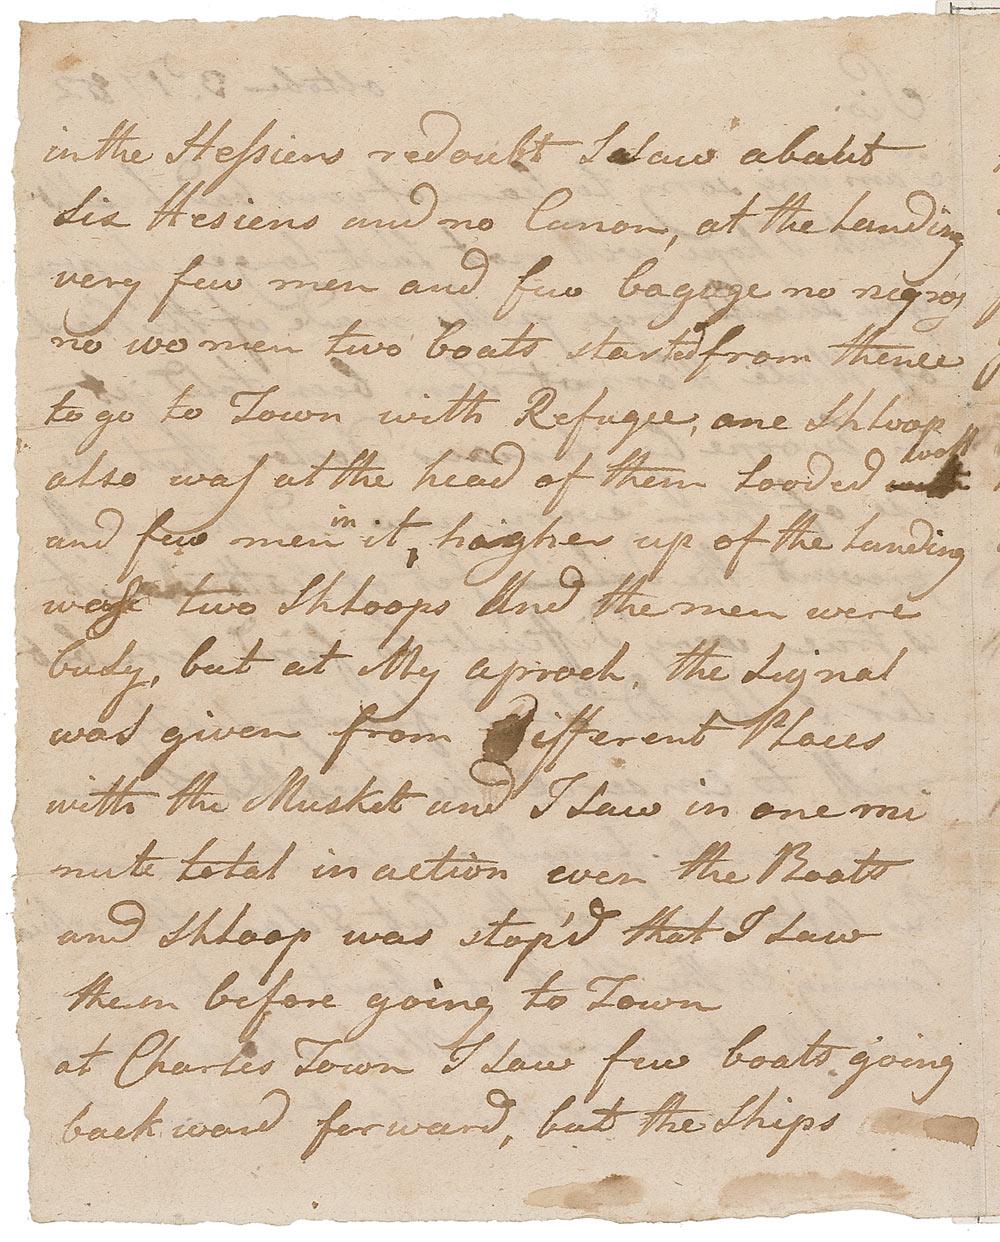 in the Hessiens redoubt I saw about
six Hesiens and no Canon, at the Landing
very few men and few bagage no negros
no women two boats started from thence
to go to Town with Refugee, one Shloop
also was at the head of them Looded
and few men in it, haigher up of the Landing
was two Shloops And the men were
busy, but at My aproch, the Signal
was given from Different Places
with the Musket and I saw in one mi
nute total in action even the Boats
and Shloop was stop'd that I saw
them before going to Town
at Charles Town I saw few boats going
back ward forward, but the Ships
October 3d 1782
Sir.